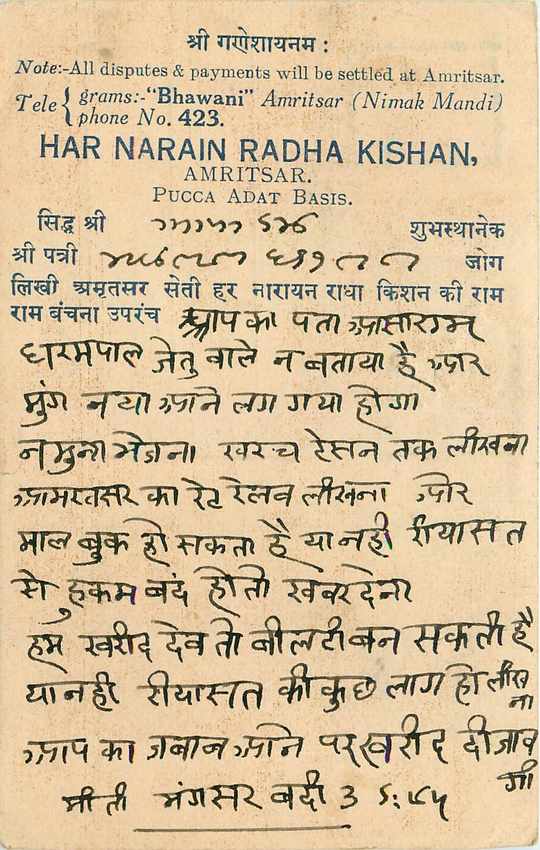 श्री गणेशायनमः
Note:-All disputes & payments will be settled at Amritsar.
Tele { grams:-"Bhawani" Amritsar (Nimak Mandi)
phone No. 423.
HAR NARAIN RADHA KISHAN,
AMRITSAR.
PUCCA ADAT BASIS.
सिद्ध श्री शुभस्थानेक
श्री पत्री जोग
लिखी अमृतसर सेती हर नारायन राधा किशन की राम
राम बंचना उपरंच आप का पता आसाराम
धरमपाल जेतु वाले न बताया है और
मुंग नया आने लग गया होगा
नमुना भेजना खरच टेसन तक लीखना
आमरतसर का रेट रेलव लीखना और
माल बुक हो सकता है या नही रीयासत
से हुकम बंद होतो खबर देना
हम खरीद देव तो बीलटी बन सकती है
या नही रीयासत की कुछ लाग हो लीख
ना
आप का जबाब आने पर खरीद दीजाव
गी
मीती मंगसर बदी 3